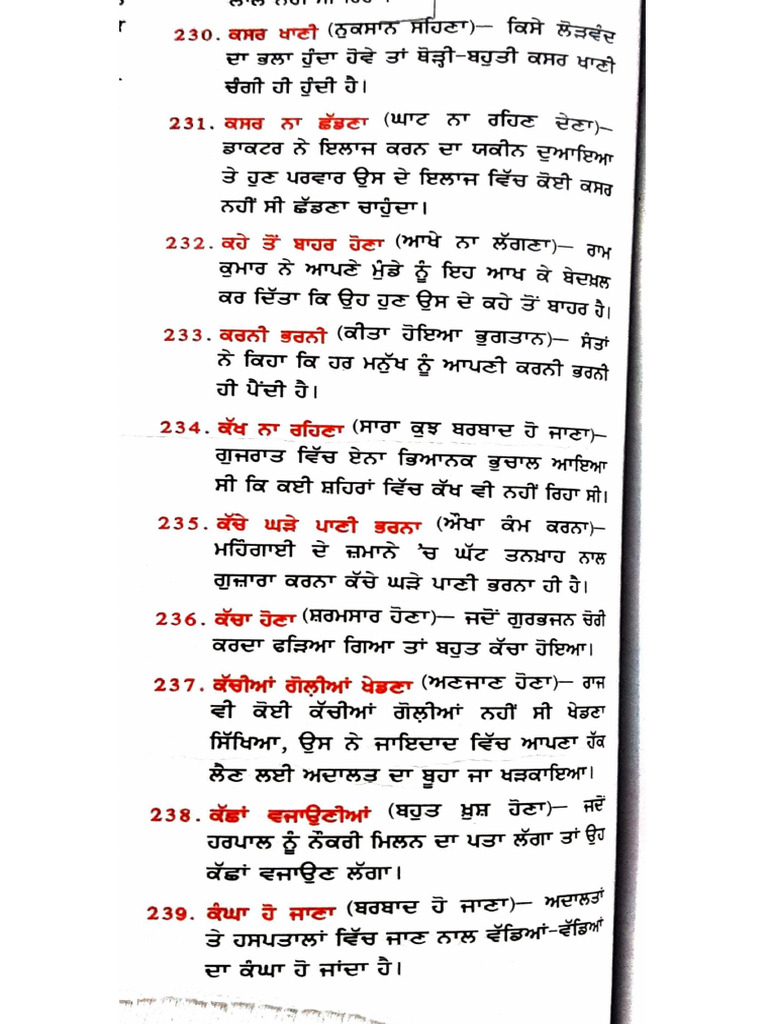 230. ਕਸਰ ਖਾਣੀ (ਨੁਕਸਾਨ ਸਹਿਣਾ)– ਕਿਸੇ ਲੋੜਵੰਦ
ਦਾ ਭਲਾ ਹੁੰਦਾ ਹੋਵੇ ਤਾਂ ਥੋੜ੍ਹੀ-ਬਹੁਤੀ ਕਸਰ ਖਾਣੀ
ਚੰਗੀ ਹੀ ਹੁੰਦੀ ਹੈ।
231. ਕਸਰ ਨਾ ਛੱਡਣਾ (ਘਾਟ ਨਾ ਰਹਿਣ ਦੇਣਾ)–
ਡਾਕਟਰ ਨੇ ਇਲਾਜ ਕਰਨ ਦਾ ਯਕੀਨ ਦੁਆਇਆ
ਤੇ ਹੁਣ ਪਰਵਾਰ ਉਸ ਦੇ ਇਲਾਜ ਵਿੱਚ ਕੋਈ ਕਸਰ
ਨਹੀਂ ਸੀ ਛੱਡਣਾ ਚਾਹੁੰਦਾ।
232. ਕਹੇ ਤੋਂ ਬਾਹਰ ਹੋਣਾ (ਆਖੇ ਨਾ ਲੱਗਣਾ)– ਰਾਮ
ਕੁਮਾਰ ਨੇ ਆਪਣੇ ਮੁੰਡੇ ਨੂੰ ਇਹ ਆਖ ਕੇ ਬੇਦਖ਼ਲ
ਕਰ ਦਿੱਤਾ ਕਿ ਉਹ ਹੁਣ ਉਸ ਦੇ ਕਹੇ ਤੋਂ ਬਾਹਰ ਹੈ।
233. ਕਰਨੀ ਭਰਨੀ (ਕੀਤਾ ਹੋਇਆ ਭੁਗਤਾਨ)– ਸੰਤਾਂ
ਨੇ ਕਿਹਾ ਕਿ ਹਰ ਮਨੁੱਖ ਨੂੰ ਆਪਣੀ ਕਰਨੀ ਭਰਨੀ
ਹੀ ਪੈਂਦੀ ਹੈ।
234. ਕੱਖ ਨਾ ਰਹਿਣਾ (ਸਾਰਾ ਕੁਝ ਬਰਬਾਦ ਹੋ ਜਾਣਾ)–
ਗੁਜਰਾਤ ਵਿੱਚ ਏਨਾ ਭਿਆਨਕ ਭੁਚਾਲ ਆਇਆ
ਸੀ ਕਿ ਕਈ ਸ਼ਹਿਰਾਂ ਵਿੱਚ ਕੱਖ ਵੀ ਨਹੀਂ ਰਿਹਾ ਸੀ।
235. ਕੱਚੇ ਘੜੇ ਪਾਣੀ ਭਰਨਾ (ਔਖਾ ਕੰਮ ਕਰਨਾ)–
ਮਹਿੰਗਾਈ ਦੇ ਜ਼ਮਾਨੇ ’ਚ ਘੱਟ ਤਨਖ਼ਾਹ ਨਾਲ
ਗੁਜ਼ਾਰਾ ਕਰਨਾ ਕੱਚੇ ਘੜੇ ਪਾਣੀ ਭਰਨਾ ਹੀ ਹੈ।
236. ਕੱਚਾ ਹੋਣਾ (ਸ਼ਰਮਸਾਰ ਹੋਣਾ)– ਜਦੋਂ ਗੁਰਭਜਨ ਚੋਰੀ
ਕਰਦਾ ਫੜਿਆ ਗਿਆ ਤਾਂ ਬਹੁਤ ਕੱਚਾ ਹੋਇਆ।
237. ਕੱਚੀਆਂ ਗੋਲ਼ੀਆਂ ਖੇਡਣਾ (ਅਣਜਾਣ ਹੋਣਾ)– ਰਾਜ
ਵੀ ਕੋਈ ਕੱਚੀਆਂ ਗੋਲ਼ੀਆਂ ਨਹੀਂ ਸੀ ਖੇਡਣਾ
ਸਿੱਖਿਆ, ਉਸ ਨੇ ਜਾਇਦਾਦ ਵਿੱਚ ਆਪਣਾ ਹੱਕ
ਲੈਣ ਲਈ ਅਦਾਲਤ ਦਾ ਬੂਹਾ ਜਾ ਖੜਕਾਇਆ।
238. ਕੱਛਾਂ ਵਜਾਉਣੀਆਂ (ਬਹੁਤ ਖ਼ੁਸ਼ ਹੋਣਾ)– ਜਦੋਂ
ਹਰਪਾਲ ਨੂੰ ਨੌਕਰੀ ਮਿਲਨ ਦਾ ਪਤਾ ਲੱਗਾ ਤਾਂ ਉਹ
ਕੱਛਾਂ ਵਜਾਉਣ ਲੱਗਾ।
239. ਕੰਘਾ ਹੋ ਜਾਣਾ (ਬਰਬਾਦ ਹੋ ਜਾਣਾ)– ਅਦਾਲਤਾਂ
ਤੇ ਹਸਪਤਾਲਾਂ ਵਿੱਚ ਜਾਣ ਨਾਲ ਵੱਡਿਆਂ-ਵੱਡਿਆਂ
ਦਾ ਕੰਘਾ ਹੋ ਜਾਂਦਾ ਹੈ।